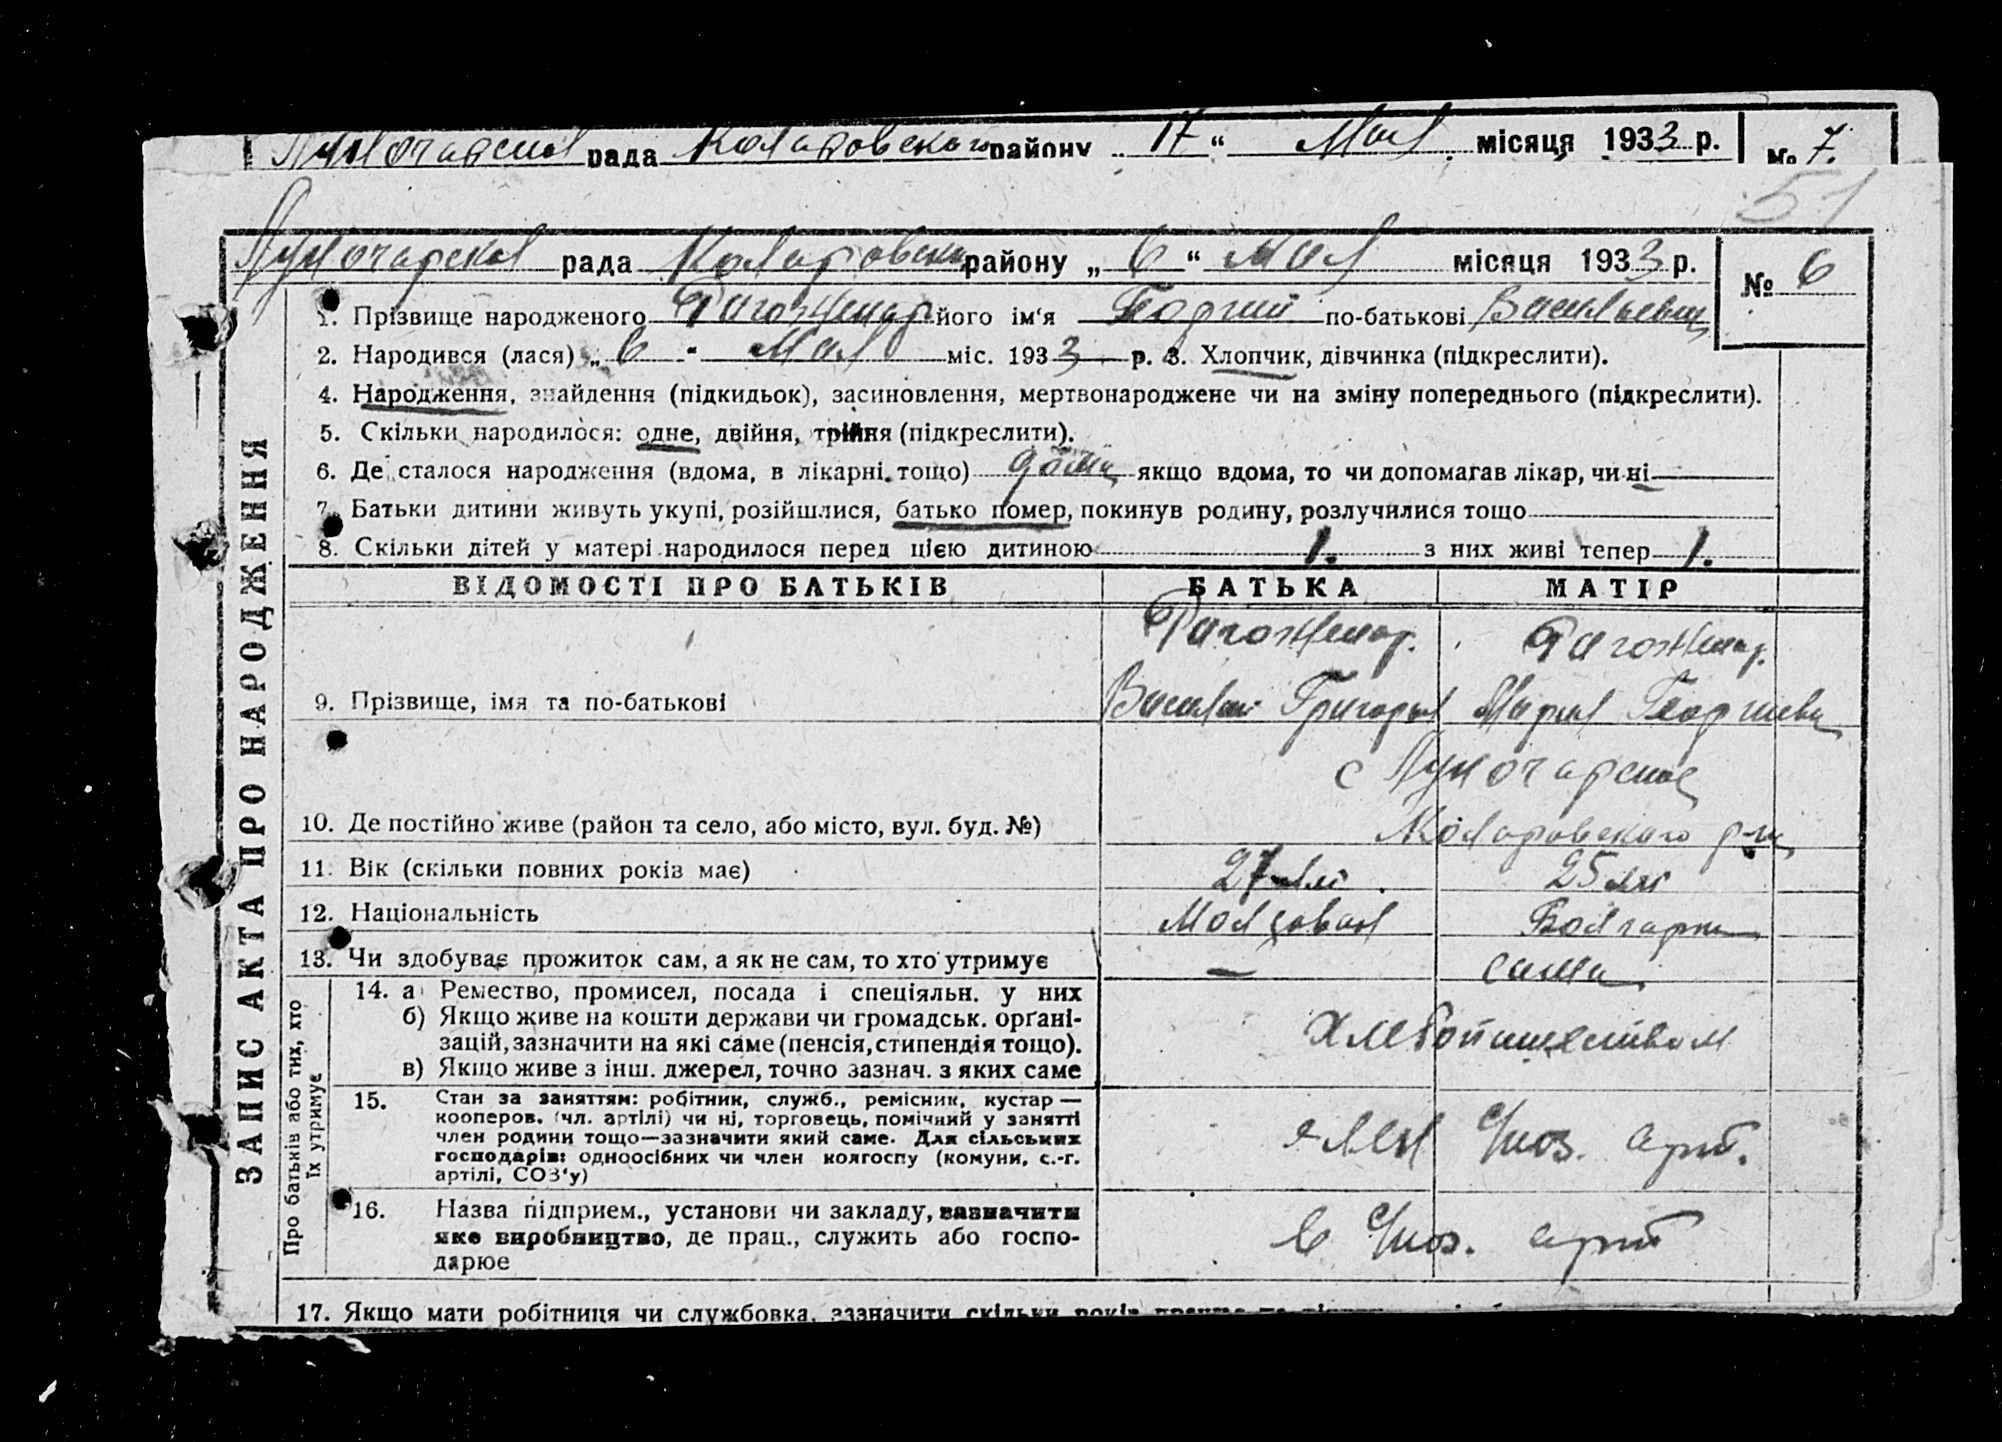 Луночарская рада Коларовского району „ 17 “ Мая місяця 1933 р. № 7.
51
Луночарская рада Коларовского району „ 6 “ Мая місяця 1933 р. № 6
1. Прізвище народженого його ім‘я Георгий по-батькові Васильевич
2. Народився (лася) „ 6 “ Мая міс. 1933 р. 3. Хлопчик, дівчинка (підкреслити).
4. Народження, знайдення (підкидьок), засиновлення, мертвонароджене чи на зміну попереднього (підкреслити).
5. Скільки народилося: одне, двійня, трійня (підкреслити).
6. Де сталося народження (вдома, в лікарні, тощо) дома якщо вдома, то чи допомагав лікар, чи ні
7. Батьки дитини живуть укупі, розійшлися, батько помер, покинув родину, розлучилися тощо
8. Скільки дітей у матері народилося перед цією дитиною 1. з них живі тепер 1.
ВІДОМОСТІ ПРО БАТЬКІВ БАТЬКА МАТІР
9. Прізвище, імя та по-батькові Василий Григорьев Мария Георгиевн
с Луночарское
10. Де постійно живе (район та село, або місто, вул. буд. №) Коларовского р-на
11. Вік (скільки повних років має) 27 лет 25 лет
12. Національність Молдован Болгарка
13. Чи здобуває прожиток сам, а як не сам, то хто утримує — сама
14. а) Ремество, промисел, посада і спеціяльн. у них
б) Якщо живе на кошти держави чи громадськ. орґані-
зацій, зазначити на які саме (пенсія, стипендія тощо).
в) Якщо живе з інш. джерел, точно зазнач. з яких саме
Хлебопашеством
15. Стан за заняттям: робітник, служб., ремісник, кустар —
кооперов. (чл. артілі) чи ні, торговець, помічний у занятті
член родини тощо—зазначити який саме. Для сільських
господарів: одноосібних чи член колгоспу (комуни, с.-г.
артілі, СОЗ‘у)
член с/хоз. арт.
16. Назва підприєм., установи чи закладу, зазначити
яке виробництво, де прац., служить або госпо-
дарює
в с/хоз. арт
17. Якщо мати робітниця чи службовка, зазначити скільки років
ЗАПИС АКТА ПРО НАРОДЖЕННЯ
Про батьків або тих, хто
їх утримує